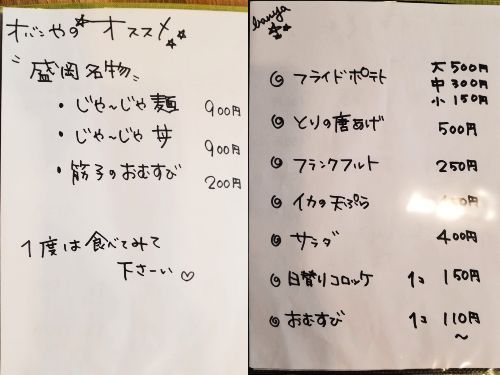 オバンやの オススメ
"盛岡名物"
・じゃ〜じゃ麺 900円
・じゃ〜じゃ丼 900円
・筋子のおむすび 200円
1度は食べてみて
下さーい♡
banya
フライドポテト 大 500円
中 300円
小 150円
とりの唐あげ 500円
フランクフルト 250円
イカの天ぷら
サラダ 400円
日替りコロッケ 1コ 150円
おむすび 1コ 110円
〜